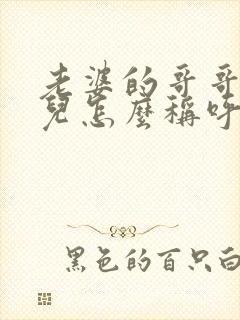 老婆的哥哥
兒怎麼稱呼
黑色的百只白